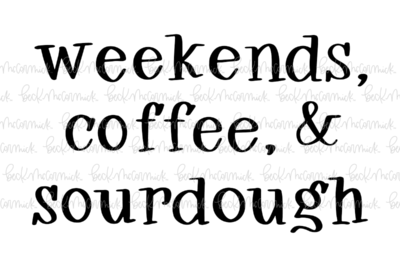 weekends,
coffee, &
sourdough